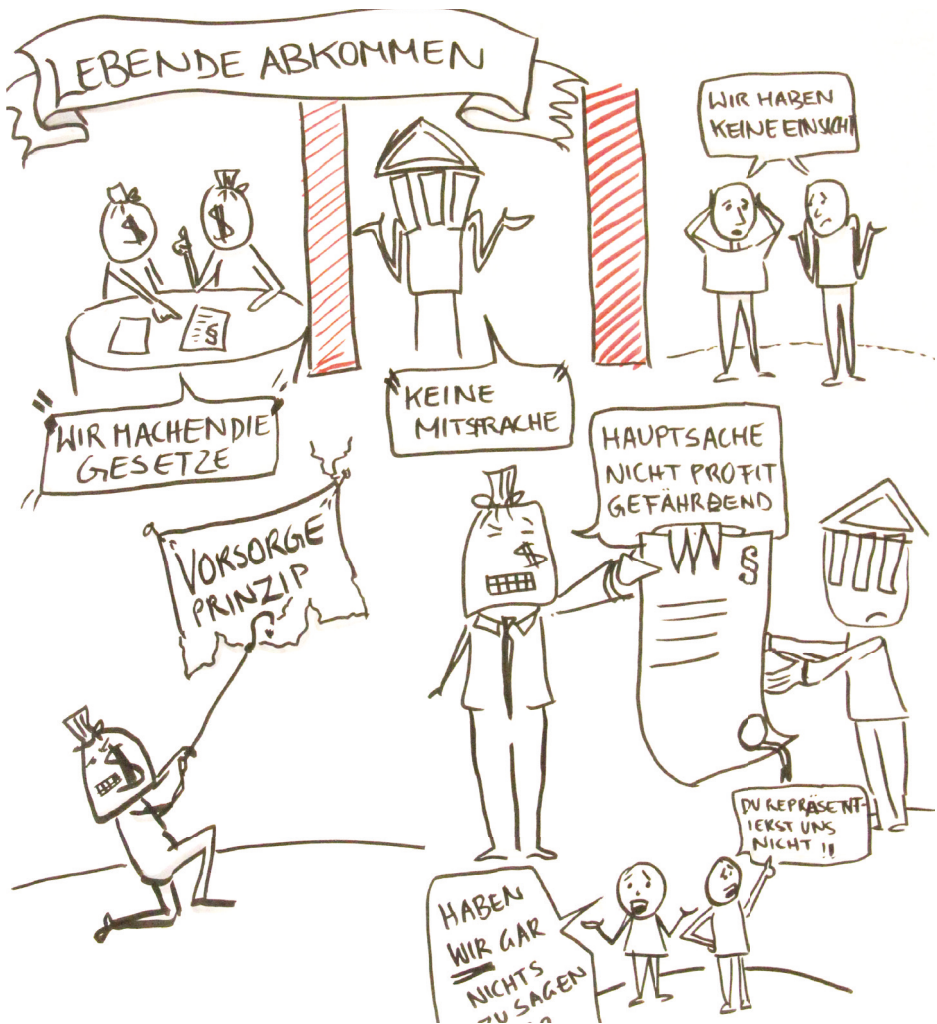 LEBENDE ABKOMMEN
WIR HABEN
KEINE EINSICHT
$
$
§
"WIR MACHEN DIE
GESETZE"
"KEINE
MITSPRACHE"
HAUPTSACHE
NICHT PROFIT
GEFÄHRDEND
§
$
VORSORGE
PRINZIP
$
DU REPRÄSENT-
IERST UNS
NICHT !!
HABEN
WIR GAR
NICHTS
ZU SAGEN